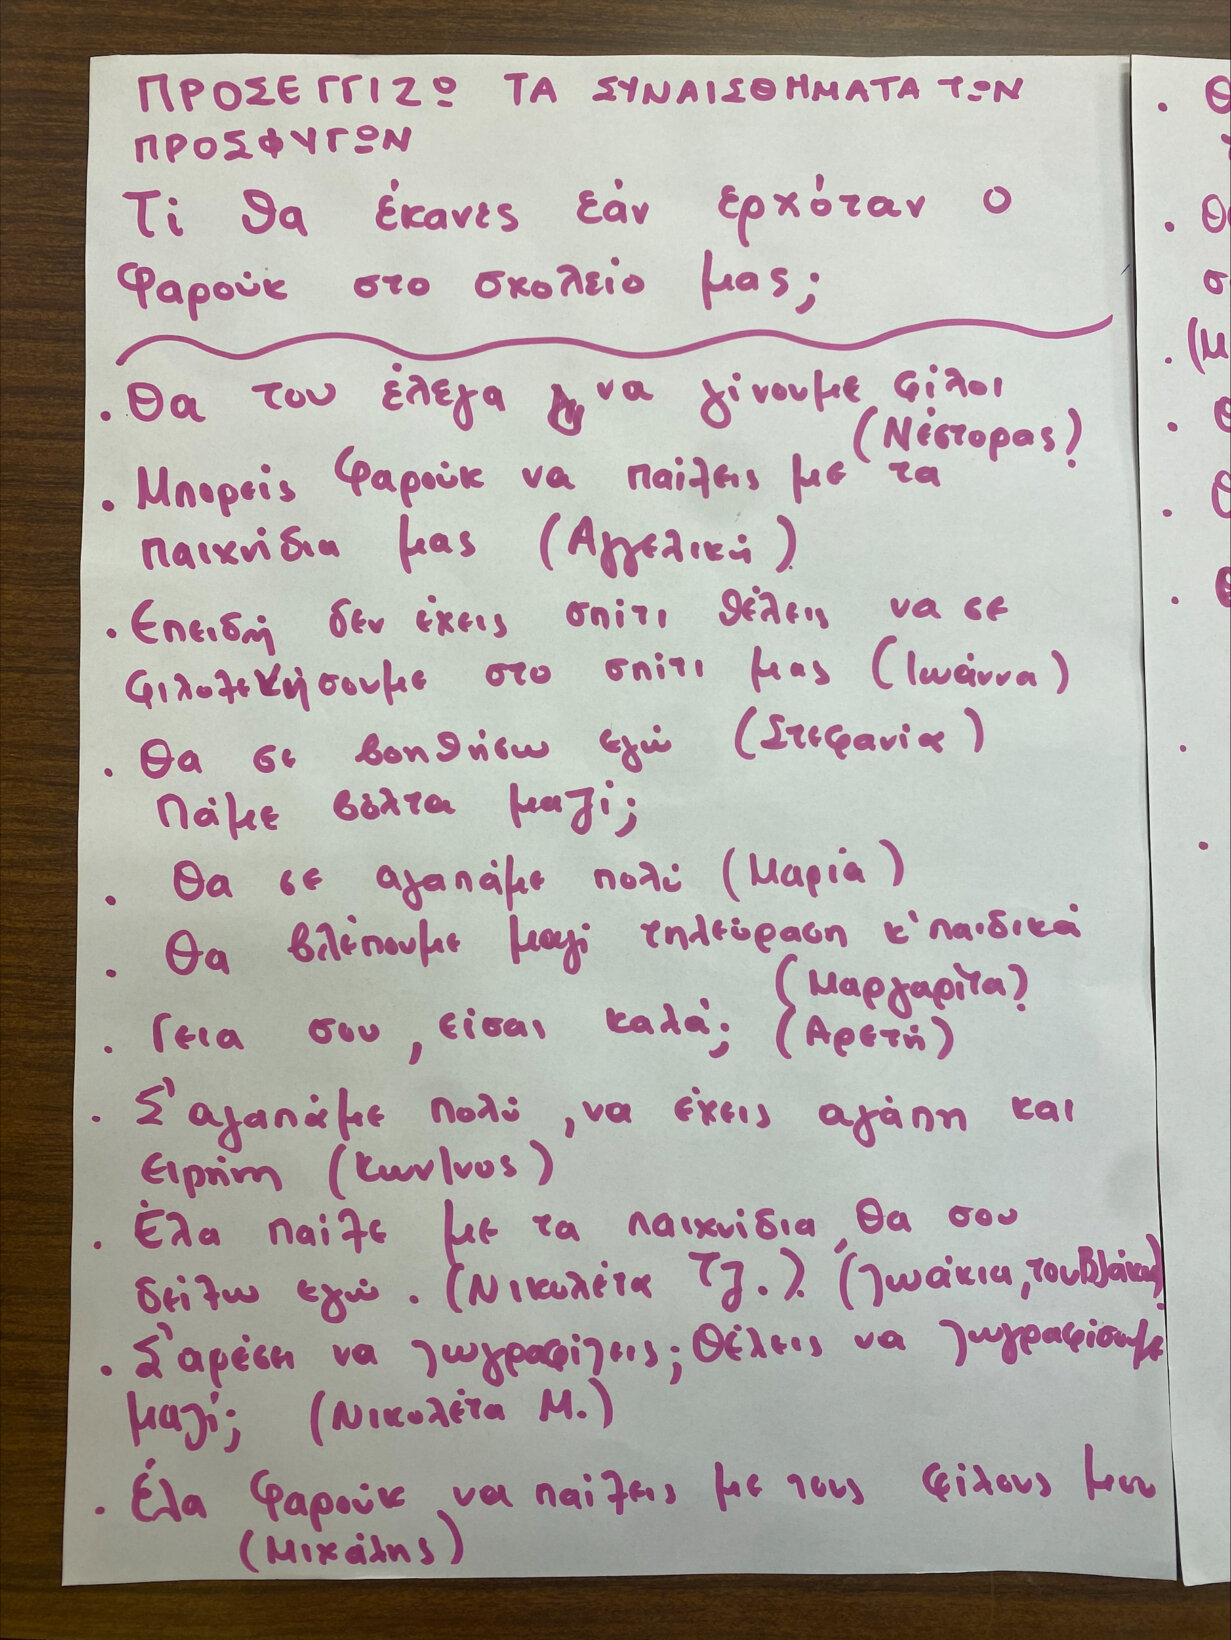 ΠΡΟΣΕΓΓΙΖΩ ΤΑ ΣΥΝΑΙΣΘΗΜΑΤΑ ΤΩΝ
ΠΡΟΣΦΥΓΩΝ
Τί θα έκανες εάν ερχόταν ο
Φαρούκ στο σχολείο μας;
. Θα του έλεγα να γίνουμε φίλοι
(Νέστορας)
. Μπορείς Φαρούκ να παίζεις με τα
παιχνίδια μας (Αγγελική)
. Επειδή δεν έχεις σπίτι θέλεις να σε
φιλοξενήσουμε στο σπίτι μας (Ιωάννα)
. Θα σε βοηθήσω εγώ (Στεφανία)
Πάμε βόλτα μαζί;
. Θα σε αγαπάμε πολύ (Μαρία)
. Θα βλέπουμε μαζί τηλεόραση κ' παιδικά
(Μαργαρίτα)
. Γεια σου, είσαι καλά; (Αρετή)
. Σ'αγαπάμε πολύ, να έχεις αγάπη και
ειρήνη (Κων/νος)
. Έλα παίξε με τα παιχνίδια, θα σου
δείξω εγώ. (Νικολέτα Τζ.) (ζωάκια, τουβλάκια)
. Σ'αρέσει να ζωγραφίζεις; Θέλεις να ζωγραφίσουμε
μαζί; (Νικολέτα Μ.)
. Έλα Φαρούκ να παίξεις με τους φίλους μου
(Μιχάλης)